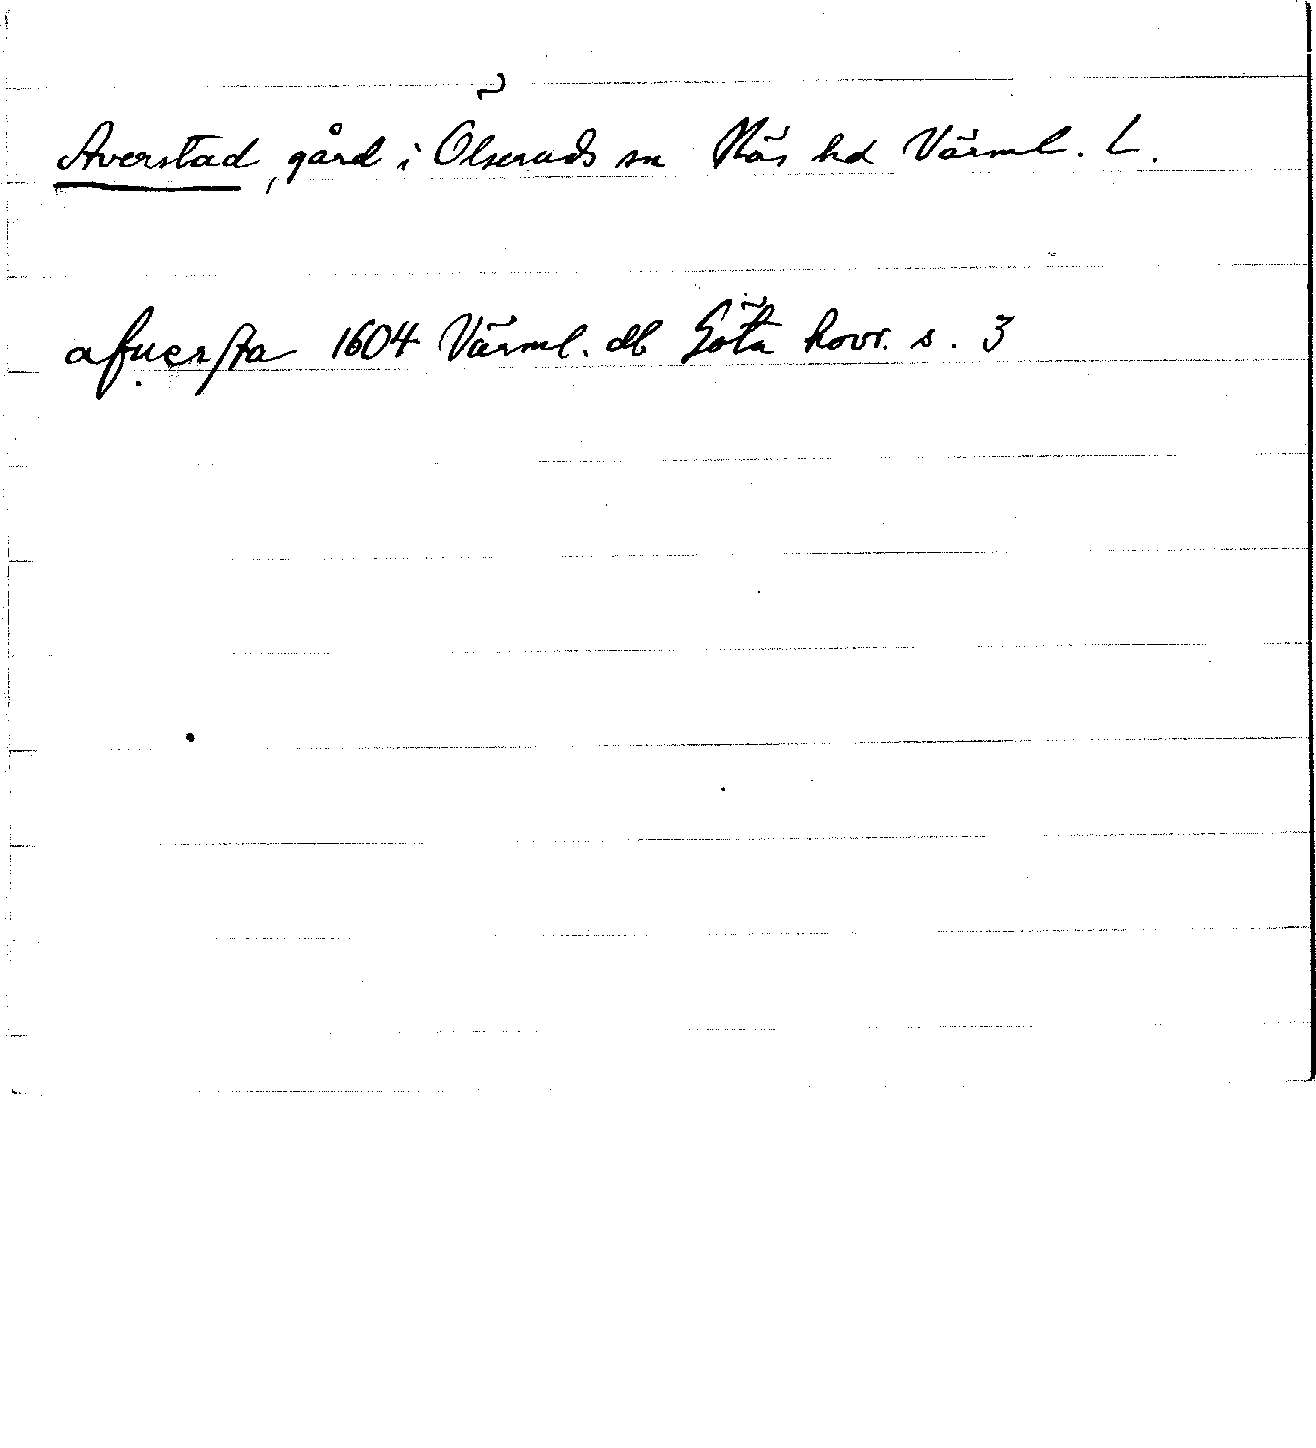 Averstad, gård i Ölseruds sn Näs hd Värml. L.
afuersta 1604 Värml. db Göta hovr. s. 3